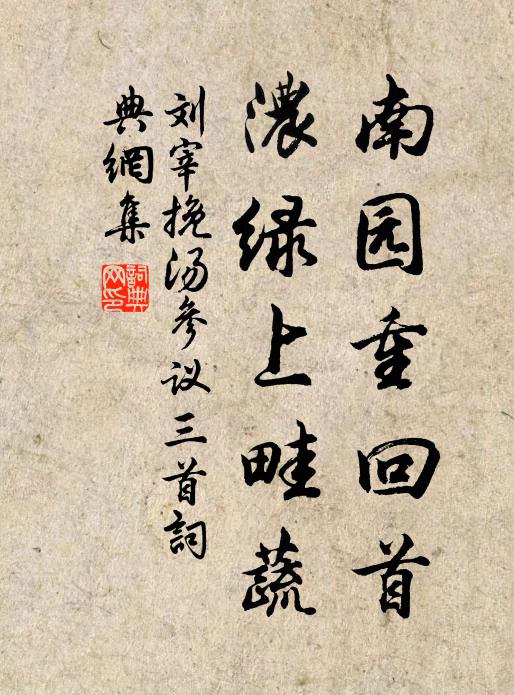 南园重回首
濃绿上畦蔬
刘宰挽汤参议三首詞
典網集
詞典
网印